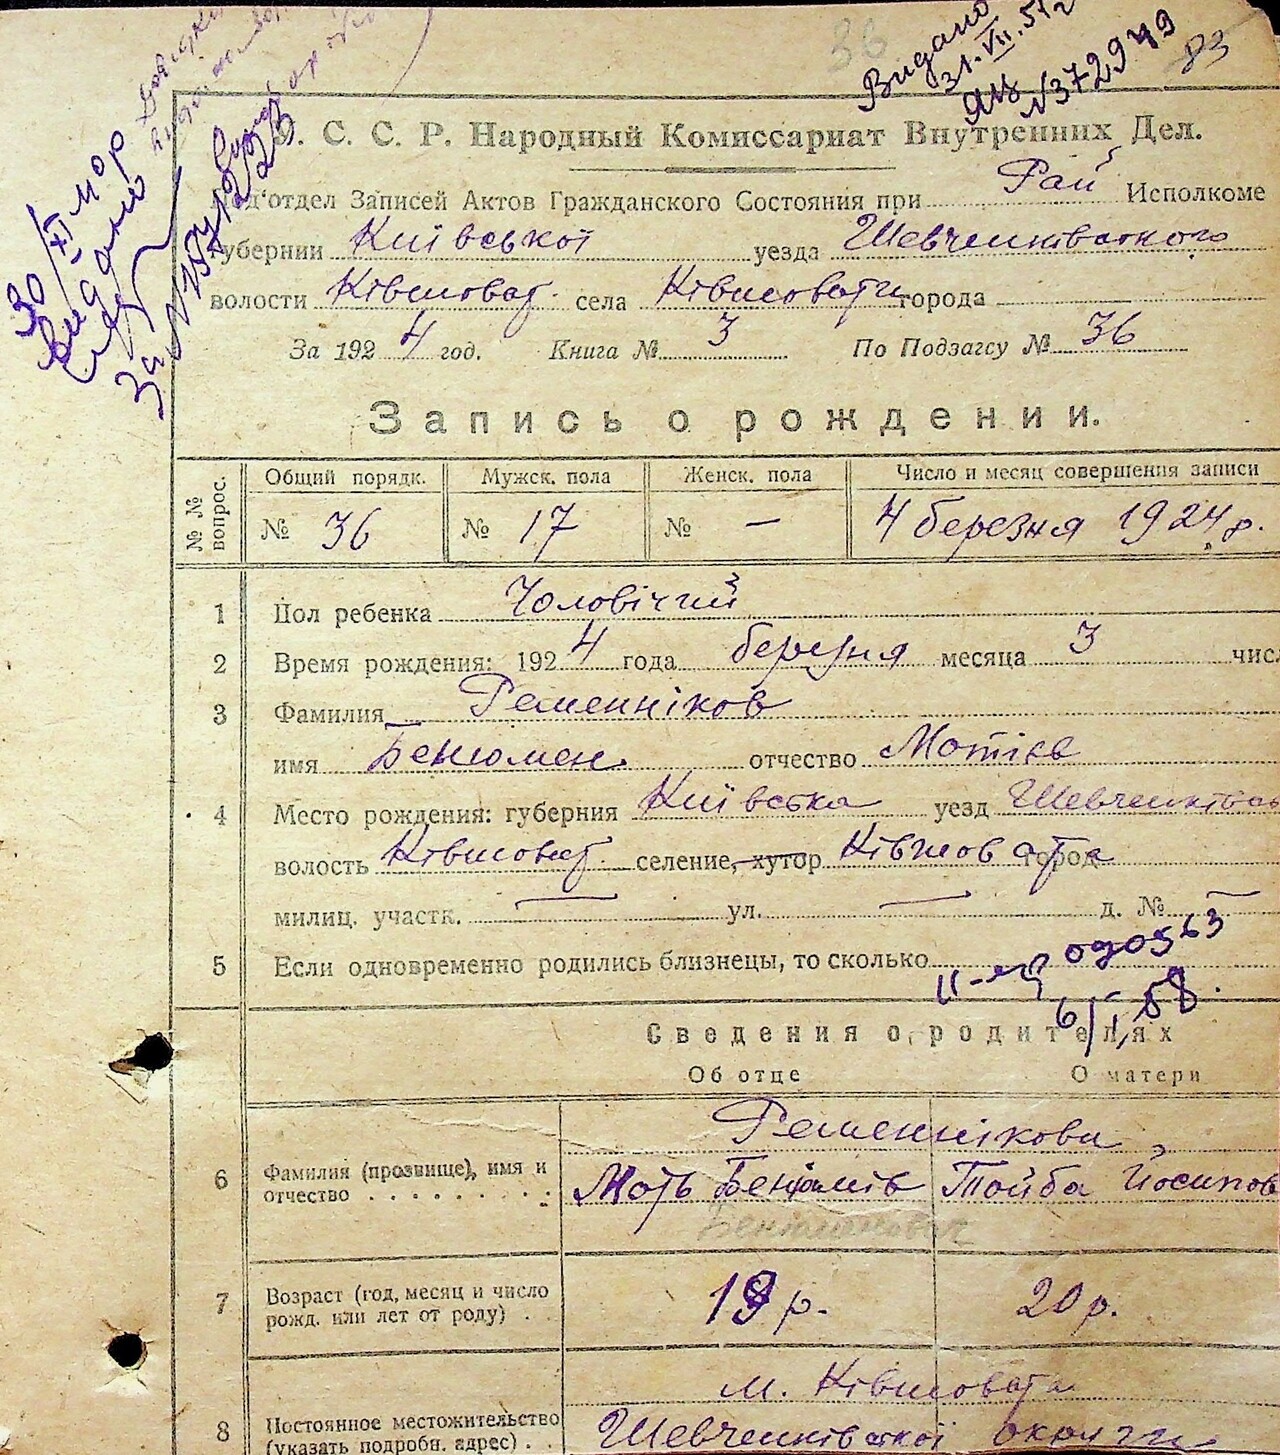 36
83
Видано
31.VII.51 р
ЯЦ
№372949
С. С. Р. Народный Комиссариат Внутренних Дел.
Под'отдел Записей Актов Гражданского Состояния при Рай Исполкоме
губернии Київської уезда Шевченківського
волости Ківшоват. села Ківшовати города
За 1924 год. Книга № 3 По Подзагсу № 36
Запись о рождении.
№№ вопрос.
Общий порядк. Мужск. пола Женск. пола Число и месяц совершения записи
№ 36 № 17 № — 4 березня 1924 р.
1 Пол ребенка Чоловічий
2 Время рождения: 1924 года березня месяца 3 числ
3 ФамилияРеменніков
имя Бенюмен отчество Мотієв
4 Место рождения: губерния Київська уезд Шевченківськ
волость Ківшоват. селение, хутор Ківшовата город
милиц. участк. — ул. — д. № —
5 Если одновременно родились близнецы, то сколько
090563
6/I,58.
Сведения о родителях
Об отце О матери
Ременнікови
6 Фамилия (прозвище), имя и отчество Моть Беньямів Тойба Йосипов
Беніаменович
7 Возраст (год, месяц и число рожд. или лет от роду) 19 р. 20 р.
м. Ківшовата
8 Постоянное местожительство (указать подробн. адрес) Шевченківської округи
30/XI 40 р
видано
за №